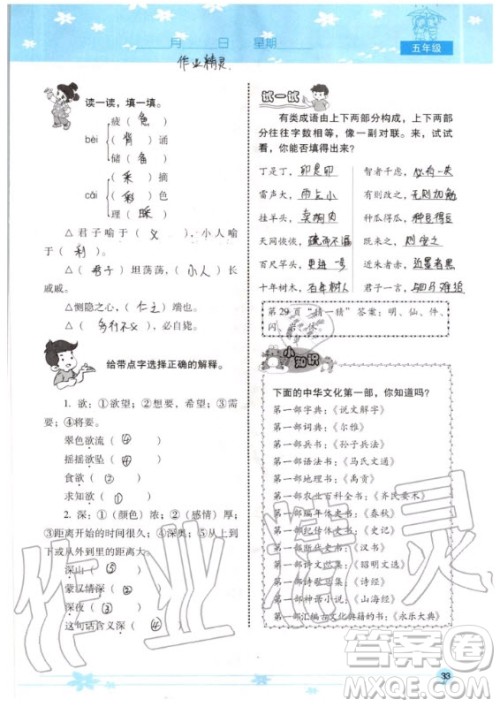 月 日 星期
五年级
作业精灵
读一读，填一填。
疲（惫）
bèi（背）诵
储（备）
（采）摘
cǎi（彩）色
理（睬）
△君子喻于（义），小人喻于（利）。
△（君子）坦荡荡，（小人）长戚戚。
△恻隐之心，（仁之）端也。
△（多行不义），必自毙。
给带点字选择正确的解释。
1. 欲：①欲望；②想要，希望；③需要；④将要。
翠色欲流（④）
摇摇欲坠（④）
食欲（①）
求知欲（①）
2. 深：①（颜色）浓；②（感情）厚；③距离开始的时间很久；④深奥；⑤从上到下或从外到里的距离大。
深山（⑤）
蒙汉情深（②）
深夜（③）
这句话含义深（④）
试一试
有类成语由上下两部分构成，上下两部分往往字数相等，像一副对联。来，试试看，你能否填得出来？
丁是丁，卯是卯 智者千虑，
雷声大，雨点小 有则改之，无则加勉
挂羊头，卖狗肉 种瓜得瓜，种豆得豆
天网恢恢，疏而不漏 既来之，则安之
百尺竿头，更进一步 近朱者赤，近墨者黑
十年树木，百年树人 君子一言，驷马难追
第29页“猜一猜”答案：明、仙、伴、
小知识
下面的中华文化第一部，你知道吗？
第一部字典：《说文解字》
第一部词典：《尔雅》
第一部兵书：《孙子兵法》
第一部语法书：《马氏文通》
第一部地理书：《禹贡》
第一部农业百科全书：《齐民要术》
第一部编年体史书：《春秋》
第一部纪传体史书：《史记》
第一部断代史书：《汉书》
第一部诗文总集：《昭明文选》
第一部诗歌总集：《诗经》
第一部神话小说：《山海经》
第一部汇编古文化典籍的书：《永乐大典》
作业精灵
答案圈
MXQE.COM
33